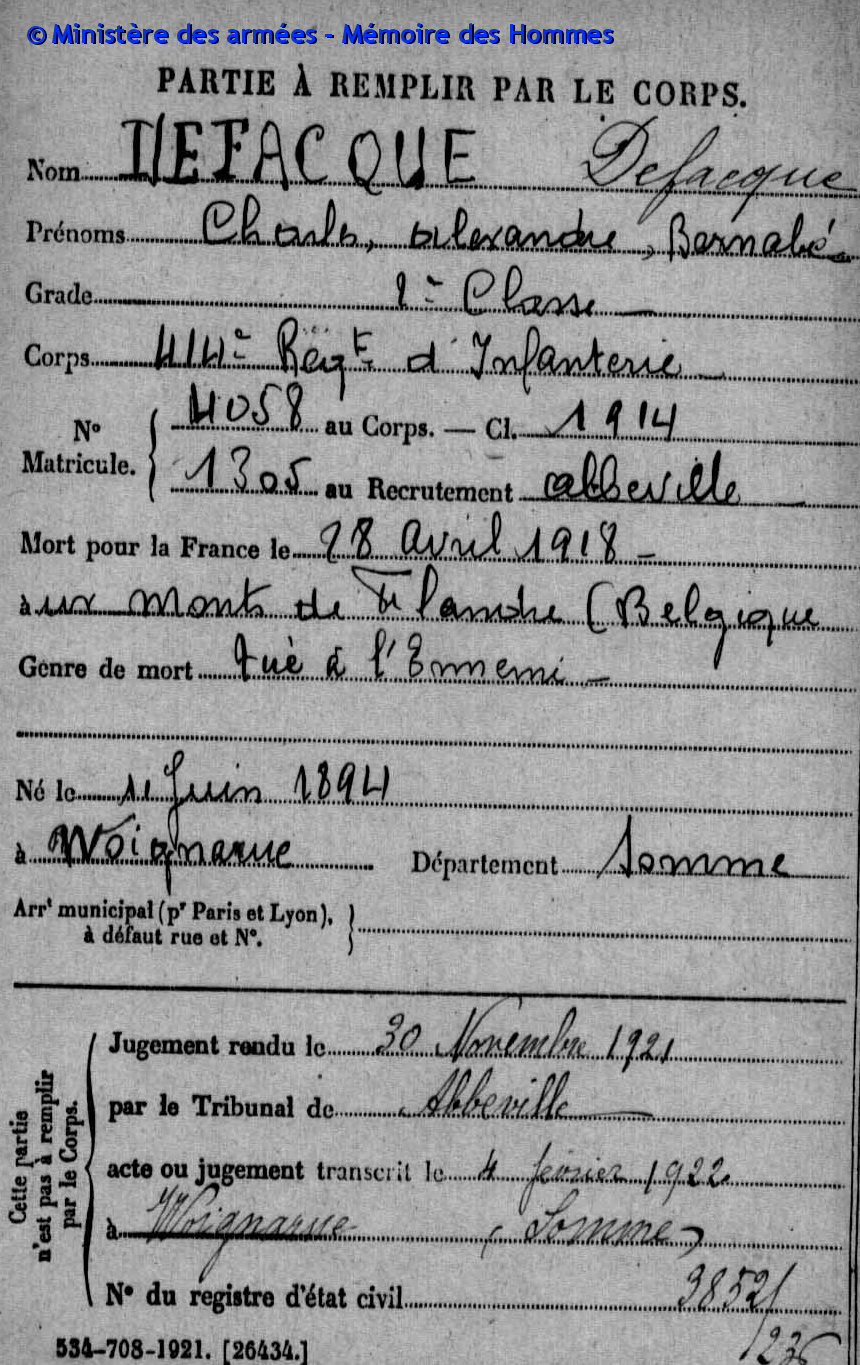 © Ministère des armées - Mémoire des Hommes
PARTIE À REMPLIR PAR LE CORPS.
Nom DEFACQUE Defacque
Prénoms Charles, Alexandre, Barnabé
Grade 2e Classe
Corps 414e Régt d'Infanterie
No Matricule. 4058 au Corps. — Cl. 1914
1305 au Recrutement Abbeville
Mort pour la France le 28 Avril 1918
aux Monts de Flandre (Belgique
Genre de mort tué à l'Ennemi
Né le 11 Juin 1894
à Woignarue Département Somme
Arrt municipal (pr Paris et Lyon),
à défaut rue et No.
Cette partie n'est pas à remplir par le Corps.
Jugement rendu le 30 Novembre 1921
par le Tribunal de Abbeville
acte ou jugement transcrit le 4 février 1922
à Woignarue (Somme)
No du registre d'état civil 3852/
236
534-708-1921. [26434.]